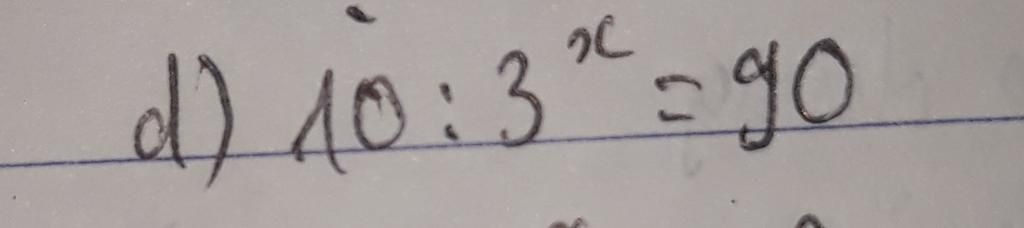 d) 10 : 3^x = 90